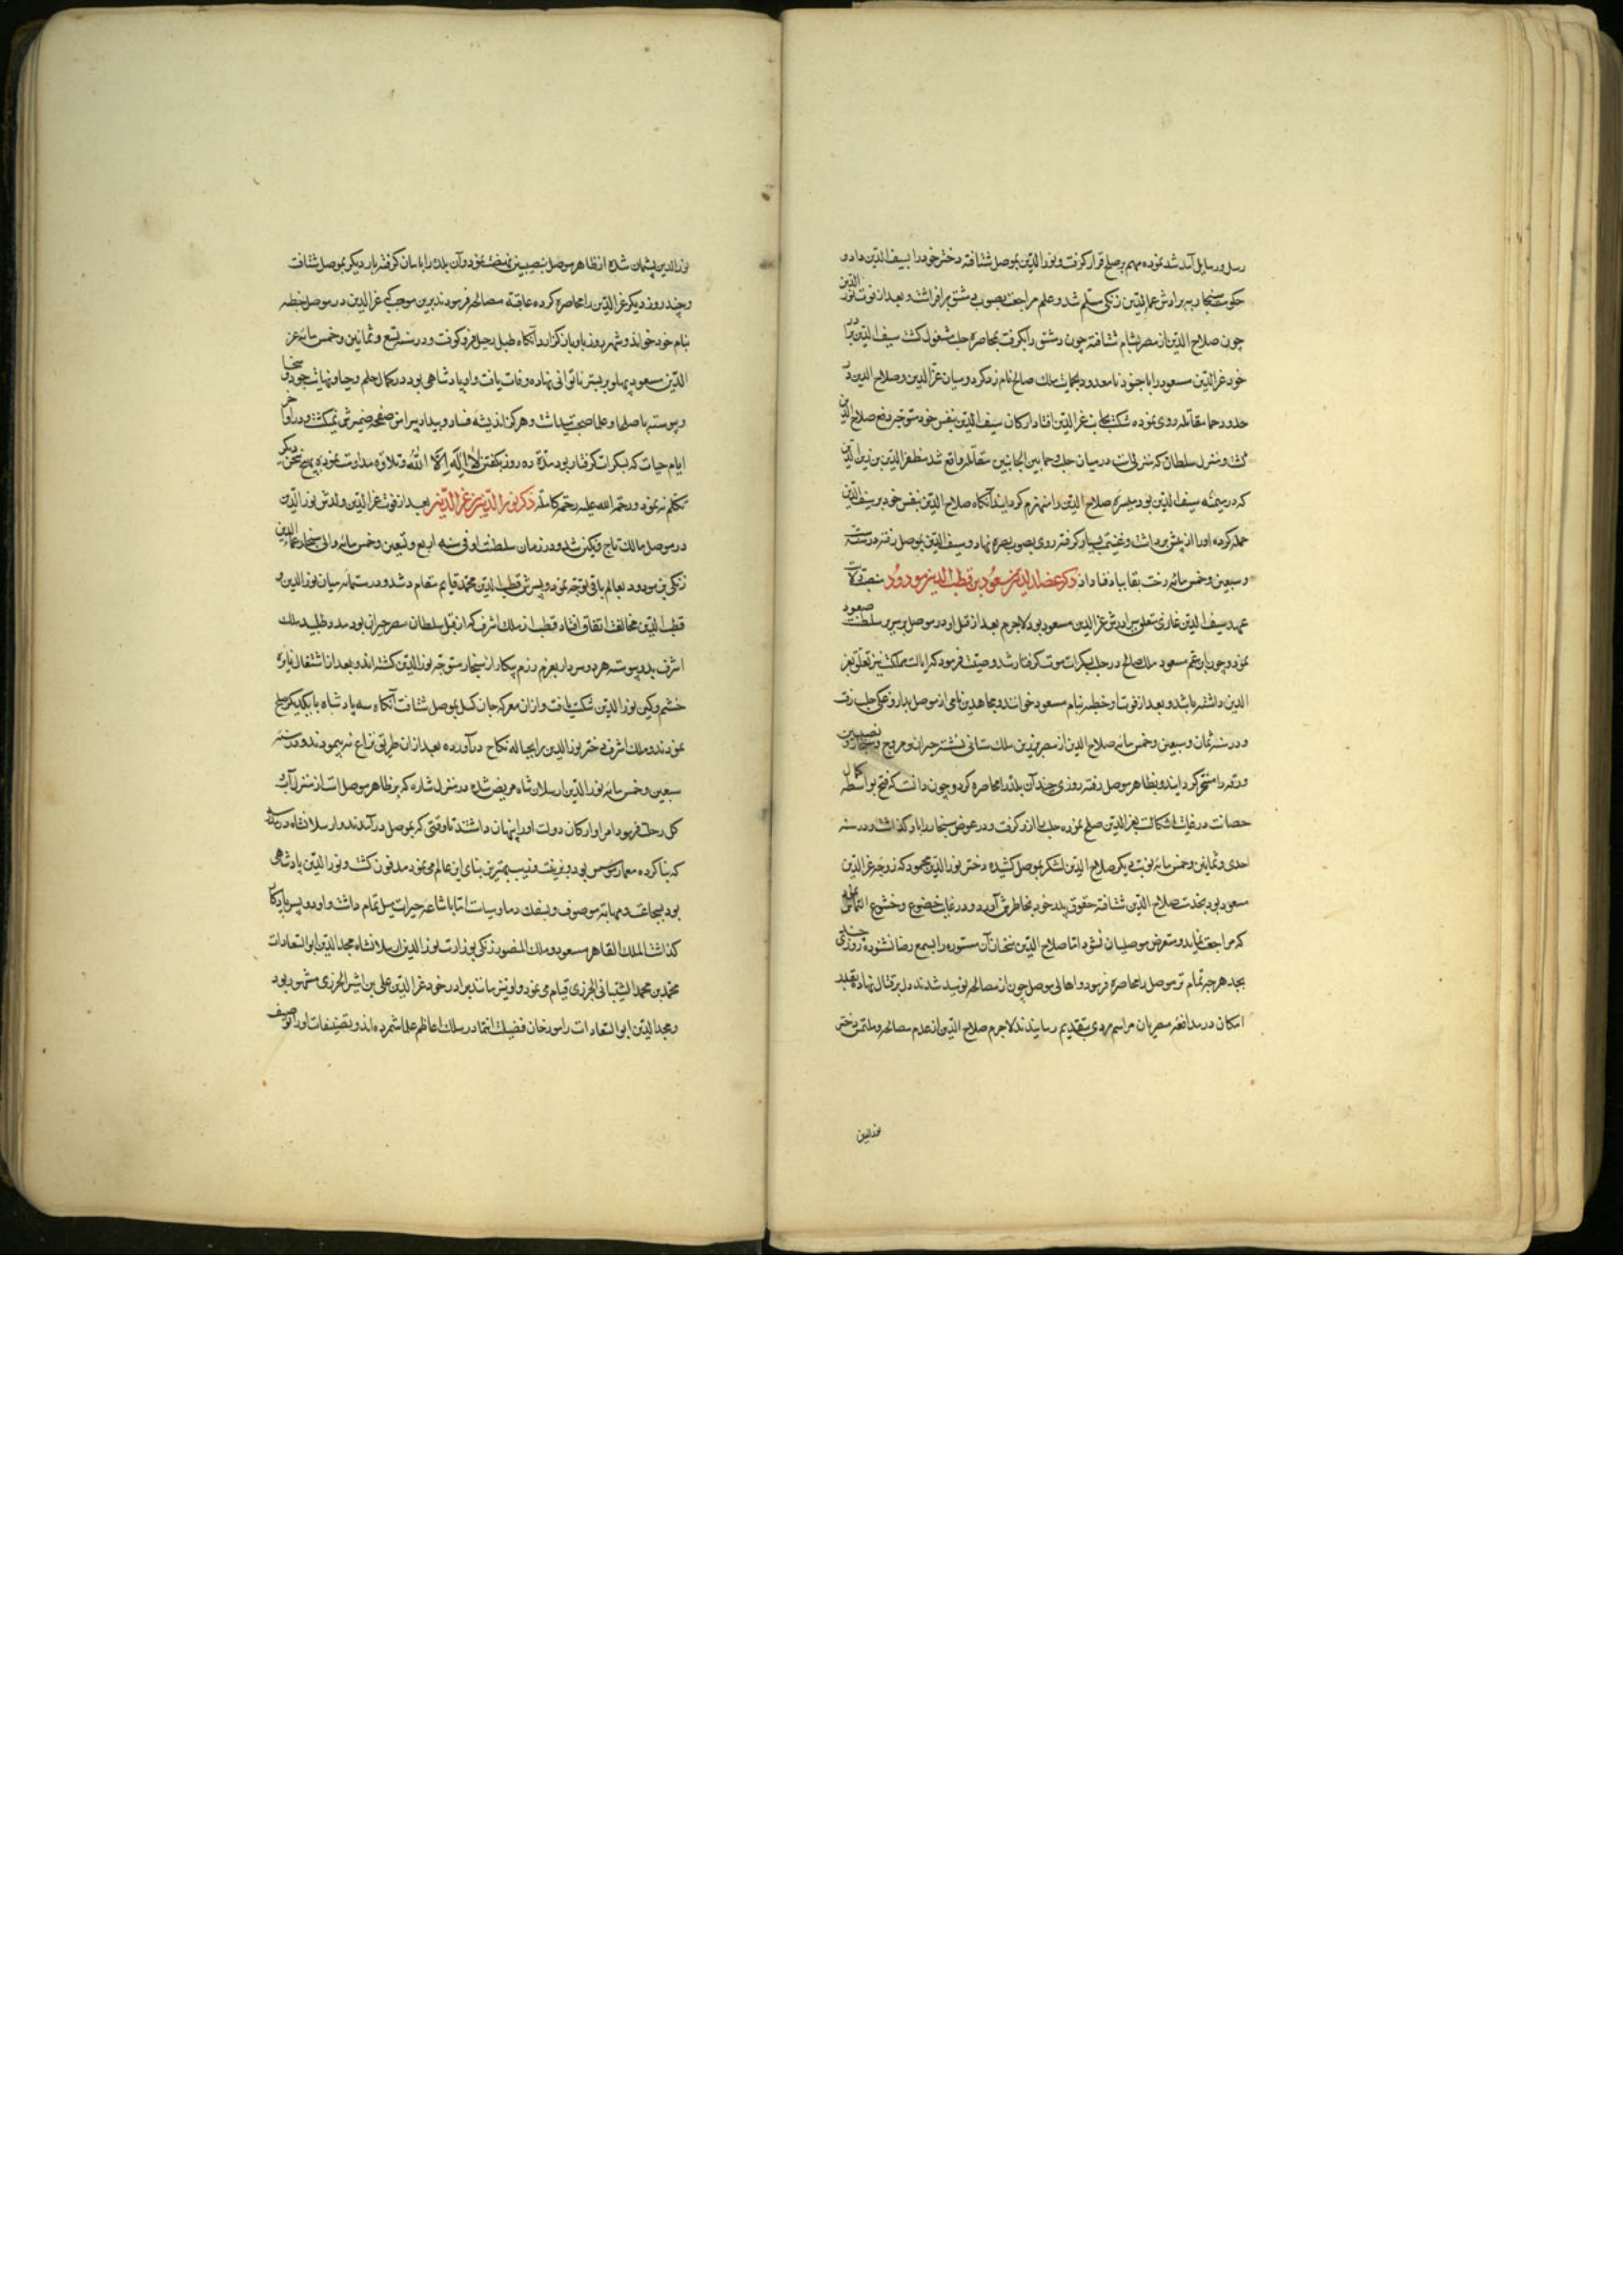 رسل و رسایل آمد شد نموده مهم بر صلح قرار گرفت و نورالدین بموصل شتافته دختر خود را بسیف الدین داد و
حکومت سنجار به برادرش عماد الدین زنکی مسلم شد و علم مراجعت بصوب دمشق برافراشت و بعد از فوت نور الدین
چون صلاح الدین از مصر بشام شتافته چون دمشق را بگرفت بمحاصره حلب مشغول گشت سیف الدین برادر
خود عزالدین مسعود را با جنود نامعدود بحمایت ملک صالح نام زد کرد و میان عزالدین و صلاح الدین در
حدود حما مقاتله روی نموده شکست بجانب عزالدین افتاد ارکان سیف الدین بنفس خود متوجه دفع صلاح الدین
گشت و منزل سلطان که منزلی است در میان حلب و حما بین الجانبین مقاتله واقع شد مظفر الدین بن زین الدین
که در میمنه سیف الدین بود میسره صلاح الدین را منهزم کردانید آنکاه صلاح الدین بنفس خود بر سیف الدین
حمله کرده اورا از پیش برداشت و غنیمت بسیار گرفته روی بصوب بصره نهاد و سیف الدین بموصل رفته در سنه ست
و سبعین و خمس مائه رخت بقا بباد فنا داد ذکر عضد الدین مسعود بن قطب الدین مودود منصب ولایت
عهد سیف الدین غازی تعلق ببرادرش عزالدین مسعود بود لاجرم بعد از قتل او در موصل بر سریر سلطنت صعود
نمود و چون ابن عم مسعود ملک صالح در حلب بسکرات موت گرفتار شد وصیت فرمود که ایالت مملکت نیز تعلق بعز
الدین داشته باشد و بعد از فوت او خطبه بنام مسعود خواندند و مجاهدین نامی از موصل بداروغکی حلب رفت
و در سنه ثمان و سبعین و خمس مائه صلاح الدین از مصر بدین ملک ستانی نشسته حران و سروج و سنجار و نصیبین
و رقه را مسخر کردانید و بظاهر موصل رفته روزی چند آن بلده را محاصره کرد و چون دانست که فتح بواسطه کمال
حصانت در غایت اشکالست بعزالدین صلح نموده حلب را ازو گرفت و در عوض سنجار را باو گذاشت و در سنه
احدی و ثمانین و خمس مائه نوبت دیگر صلاح الدین لشکر بموصل کشیده دختر نورالدین محمود که زوجه عزالدین
مسعود بود بخدمت صلاح الدین شتافته حقوق پدر خود بخاطرش آورد و در غایت خضوع و خشوع التماس نمود
که مراجعت نماید و متعرض موصلیان نشود اما صلاح الدین سخنان آن مستوره را بسمع رضا نشنوده روزی چند
بجد هر چه تمام تر موصل را محاصره فرمود و اهالی موصل چون از مصالحه نومید شدند دل بر قتال نهاده بقدر
امکان در مدافعه مصریان مراسم مردی بتقدیم رسانیدند لاجرم صلاح الدین از عدم مصالحه و ملتمس دختر
نورالدین
نورالدین پشیمان شده از ظاهر موصل بنصیبین نهضت نمود و آن بلده را بامان گرفته بار دیگر بموصل شتافت
و چند روز دیگر عزالدین را محاصره کرده عاقبة مصالحه فرمودند برین موجب که عزالدین در موصل خطبه
بنام خود خواند و شهر بروز باو بازکزارد آنکاه طبل رحیل فرو کوفت و در سنه تسع و ثمانین و خمس مائه عز
الدین مسعود پهلو بر بستر ناتوانی نهاده وفات یافت و او پادشاهی بود در کمال حلم و حیا و نهایت جود و سخا
و پیوسته با صلحا و علما صحبت میداشت و هرگز اندیشه فساد و بیداد پیرامن صفحه ضمیرش نمیکشت و در اواخر
ایام حیات که بسکرات گرفتار بود مدة ده روز بکفتن لا اله الا الله و تلاوة مداومت نموده بهیچ سخن دیگر
تکلم نه نمود رحمة الله علیه رحمة کاملة ذکر نور الدین بن عز الدین بعد از فوت عزالدین ولدش نورالدین
در موصل مالک تاج و نکین شد و در زمان سلطنت او فی سنه اربع و تسعین و خمس مائه والی سنجار عماد الدین
زنکی بن مودود بعالم باقی توجه نموده و پسرش قطب الدین محمد قایم مقام شد و در ستمائه میان نورالدین و
قطب الدین مخالفت اتفاق افتاد قطب از ملک اشرف که از قبل سلطان مصر حران بود مدد طلبید ملک
اشرف بدو پیوسته هر دو سردار بعزم رزم پیکار از سنجار متوجه نورالدین کشته اند و بعد از اشتغال نایره
خشم و کین نورالدین شکست یافت و از ان معرکه جان کسل بموصل شتافت آنکاه سه پادشاه با یکدیکر صلح
نمودند و ملک اشرف دختر نورالدین را بحباله نکاح درآورده بعد از ان طریق نزاع نه پیمودند و در سنه
سبعین و خمس مائه نورالدین ارسلان شاه مریض شده در منزل شاره که بر ظاهر موصل است از منزل آب و
کل رحلت فرمود امرا و ارکان دولت اورا پنهان داشتند تا وقتی که بموصل درآمدند و ارسلانشاه در مدرسه
که بنا کرده معمار بود و بزینت و زیب بهترین بنای این عالم می نمود مدفون کشت و نورالدین پادشاهی
بود بشجاعت و مهابة موصوف و بسفک دما و سیاست اما باشاعه خیرات میل تمام داشت و او دو پسر یادکار
گذاشت الملک القاهر مسعود و ملک المنصور زنکی بوزارت نورالدین ارسلانشاه مجد الدین ابو السعادات
محمد بن محمد الشیبانی الجزری قیام می نمود و او نیز مانند برادر خود عزالدین علی بن اثیر الجزری مشهور بود
و مجد الدین ابو السعادات را مورخان فضیلت انتما در سلک اعاظم علما شمرده اند و تصنیفات اورا توصیف